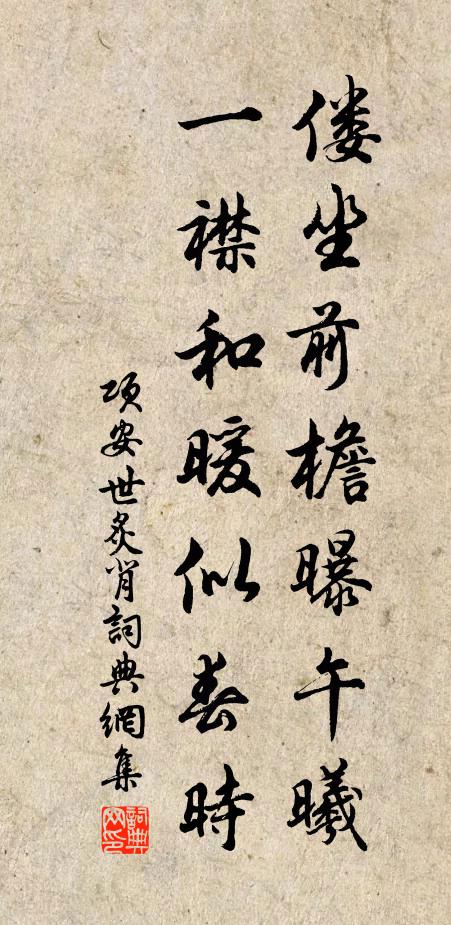 傴坐前檐曝午曦
一襟和暖似春時
项安世炙背詞典網集
詞典網印